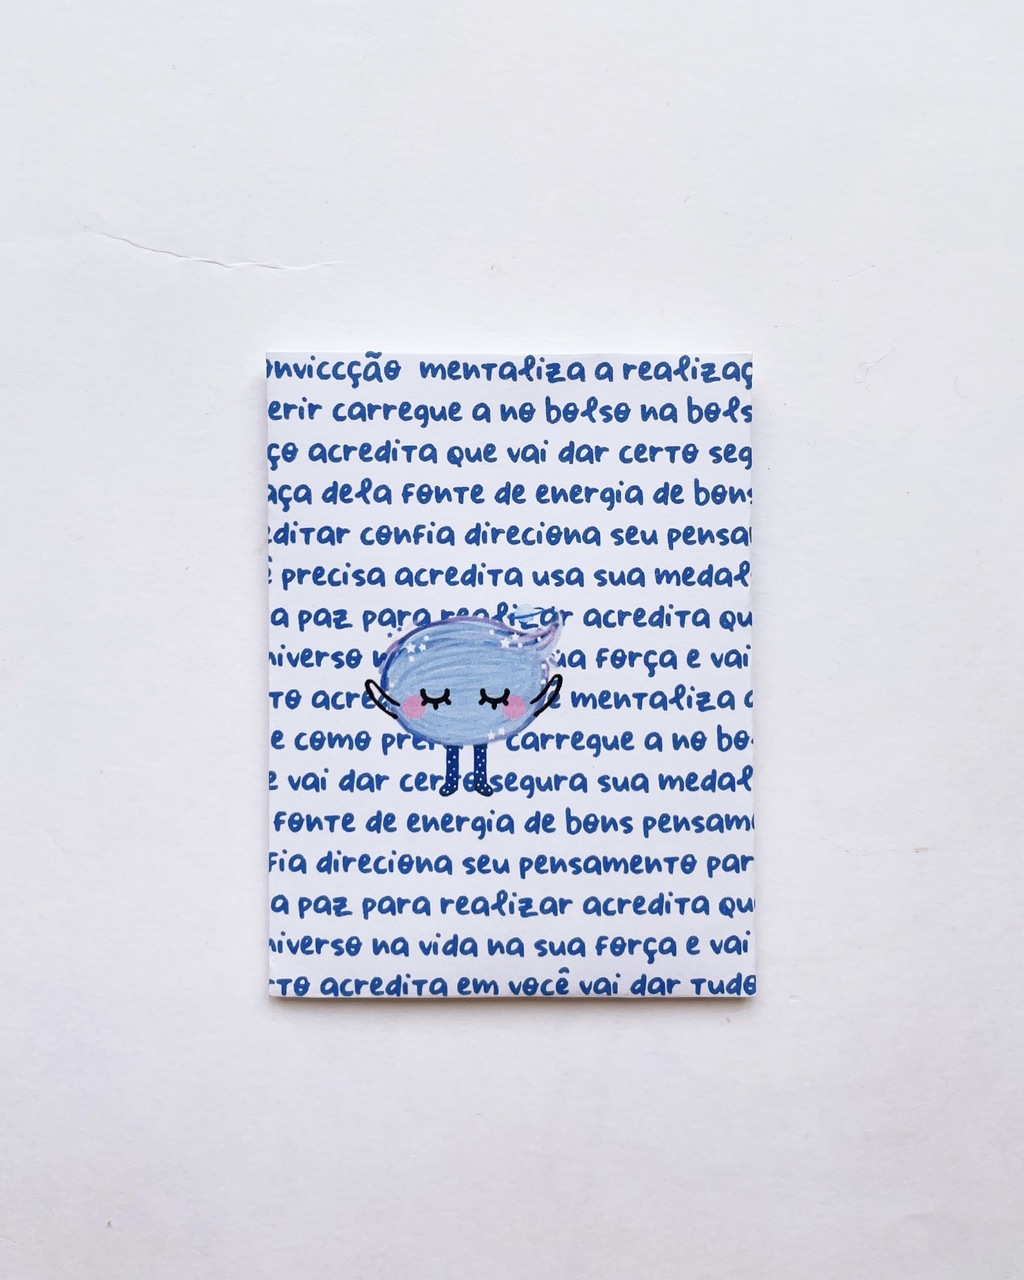 onviccção mentaliza a realizaç
erir carregue a no bolso na bols
ço acredita que vai dar certo seg
aça dela fonte de energia de bons
editar confia direciona seu pensa
ê precisa acredita usa sua medal
a paz para realizar acredita qu
niverso ua força e vai
to acre e mentaliza a
e como pre carregue a no bo
e vai dar certo segura sua medal
fonte de energia de bons pensam
fia direciona seu pensamento par
a paz para realizar acredita qu
niverso na vida na sua força e vai
rto acredita em você vai dar tudo